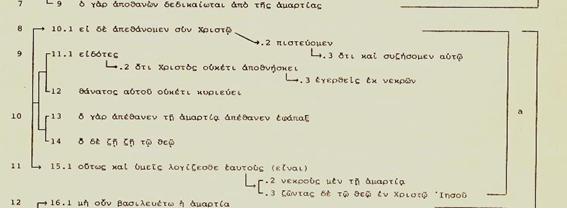 7 9 ὁ γὰρ ἀποθανὼν δεδικαίωται ἀπὸ τῆς ἁμαρτίας
8 10.1 εἰ δὲ ἀπεθάνομεν σὺν Χριστῷ
.2 πιστεύομεν
.3 ὅτι καὶ συζήσομεν αὐτῷ
9 11.1 εἰδότες
.2 ὅτι Χριστὸς οὐκέτι ἀποθνῄσκει
.3 ἐγερθεὶς ἐκ νεκρῶν
12 θάνατος αὐτοῦ οὐκέτι κυριεύει
10 13 ὃ γὰρ ἀπέθανεν τῇ ἁμαρτίᾳ ἀπέθανεν ἐφάπαξ
a
14 ὃ δὲ ζῇ ζῇ τῷ θεῷ
11 15.1 οὕτως καὶ ὑμεῖς λογίζεσθε ἑαυτοὺς (εἶναι)
.2 νεκροὺς μὲν τῇ ἁμαρτίᾳ
.3 ζῶντας δὲ τῷ θεῷ ἐν Χριστῷ Ἰησοῦ
12 16.1 μὴ οὖν βασιλευέτω ἡ ἁμαρτία